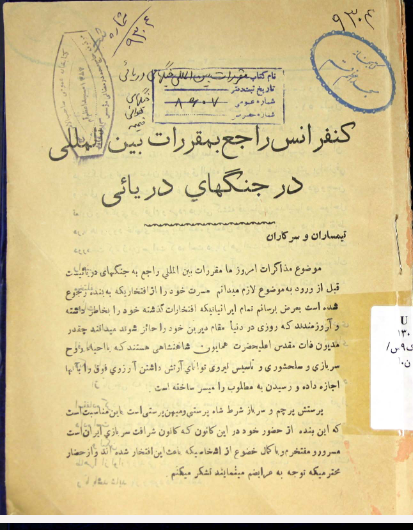 شماره
۹۳۰۴
۹۳۰۴
نام کتاب مقررات بین المللی جنگهای دریائی
تاریخ ثبت دفتر
شماره عمومی ۸۴۰۷
کنفرانس راجع بمقررات بین المللی
در جنگهای دریائی
تیمساران و سرکاران
موضوع مذاکرات امروز ما مقررات بین المللی راجع به جنگهای دریائیست
قبل از ورود به موضوع لازم میدانم مسرت خود را از افتخاریکه به بنده رجوع
شده است بعرض برسانم تمام ایرانیانیکه افتخارات گذشته خود را بخاطر داشته
و آرزومندند که روزی در دنیا مقام دیرین خود را حائز شوند میدانند چقدر
مدیون ذات مقدس اعلیحضرت همایون شاهنشاهی هستند که با احیاء روح
سربازی و سلحشوری و تأسیس نیروی توانای آرتش داشتن آرزوی فوق را بآنها
اجازه داده و رسیدن به مطلوب را میسر ساخته است
پرستش پرچم و سرباز شرط شاه پرستی و میهن پرستی است باین مناسبت است
که این بنده از حضور خود در این کانون که کانون شرافت سربازی ایران است
مسرور و مفتخر بوده با کمال خضوع از اشخاصیکه باعث این افتخار شده اند و از حضار
محترمیکه توجه به عرایضم مینمایند تشکر میکنم
U